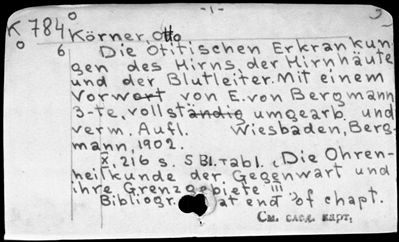 -1-
K 784
Körner, Otto
6
Die Otitischen Erkrankun
gen des Hirns, der Hirnhäute
und der Blutleiter. Mit einem
Vorwort von E. von Bergmann
3-te, vollständig umgearb. und
verm. Aufl. Wiesbaden, Berg-
mann, 1902.
X, 216 s. 5 Bl. Tabl. (Die Ohren-
heilkunde der Gegenwart und
ihre Grenzgebiete III
Bibliogr. at end of chapt.
См. след. карт.